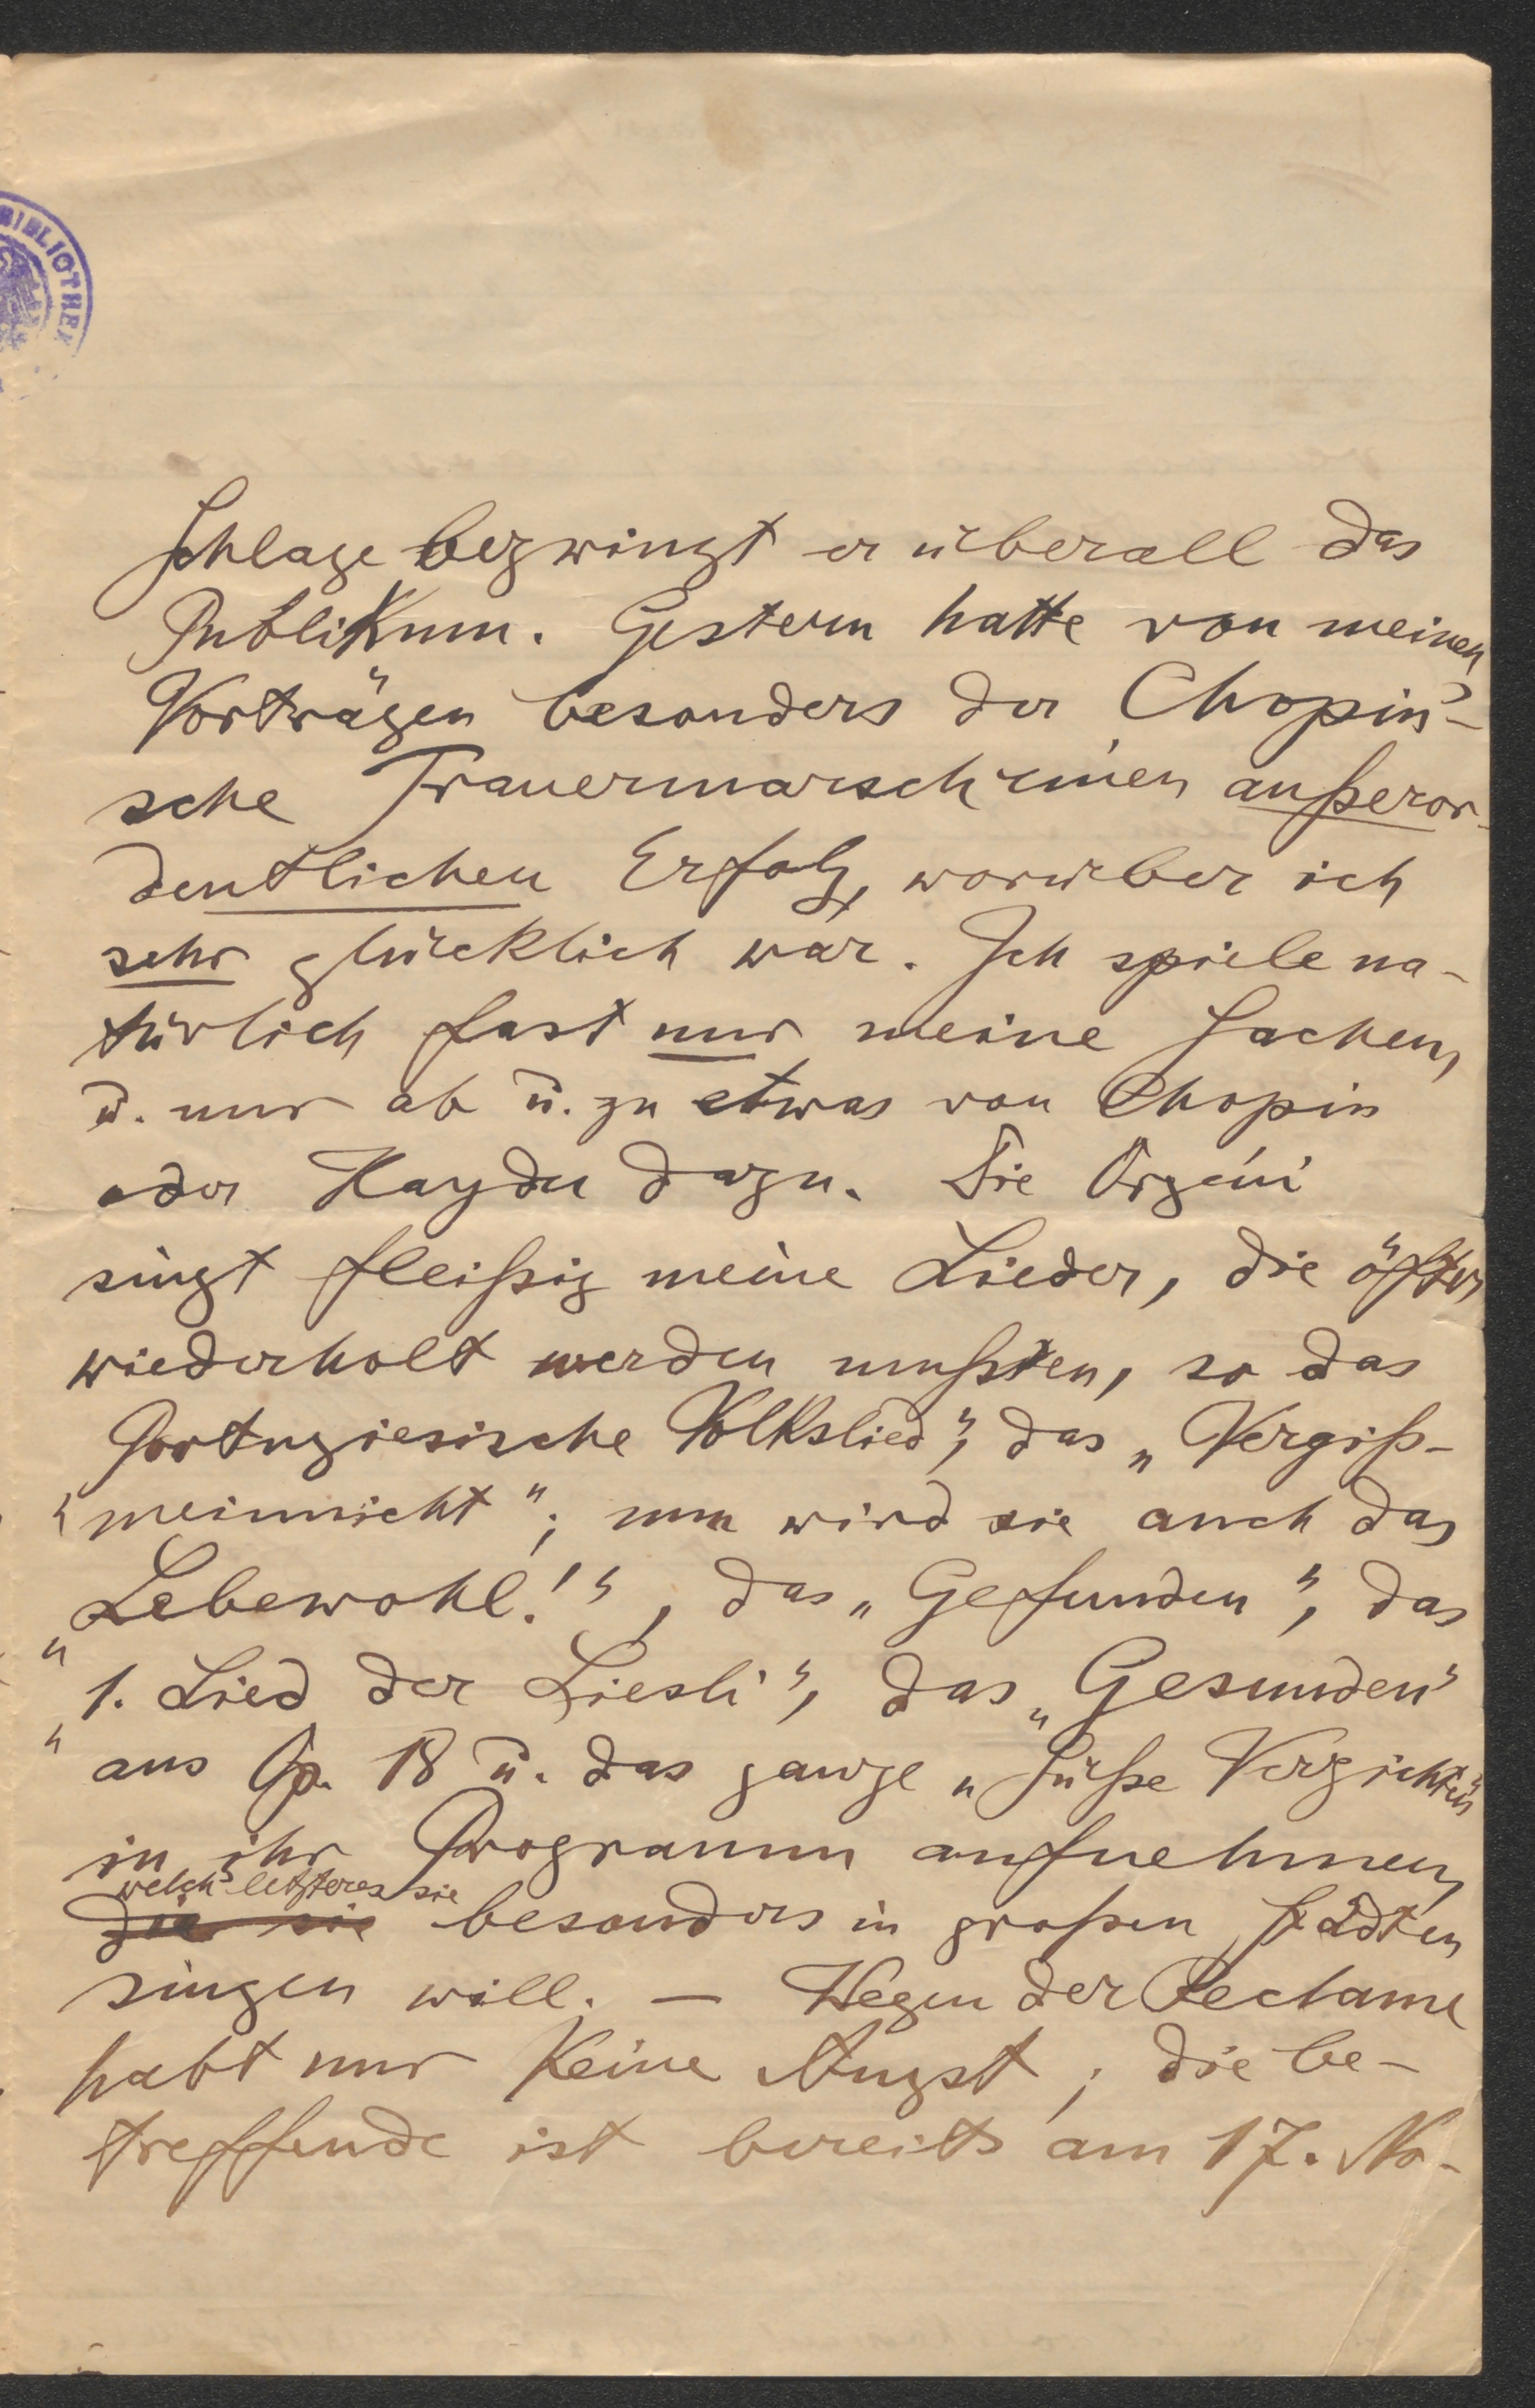 BIBLIOTHEK
schlage bezwingt er überall das
Publikum. Gestern hatte von meinen
Vorträgen besonders der Chopin'-
sche Trauermarsch einen außeror-
dentlichen Erfolg, worüber ich
sehr glücklich war. Ich spiele na-
türlich fast nur meine Sachen,
u. nur ab u. zu etwas von Chopin
oder Haydn dazu. Die Orgéni
singt fleißig meine Lieder, die öfter
wiederholt werden mußten, so das
Portugiesische Volkslied", das „Vergiß-
meinnicht"; nun wird sie auch das
„Lebewohl!", das „Gefunden", das
„1. Lied der Liesli", das „Gesunden"
aus Op. 18 u. das ganze „Süße Verzichten"
in ihr Programm aufnehmen,
welch' letzteres sie
die sie besonders in großen Städten
singen will. — Wegen der Reclame
habt nur keine Angst; die be-
treffende ist bereits am 17. No-